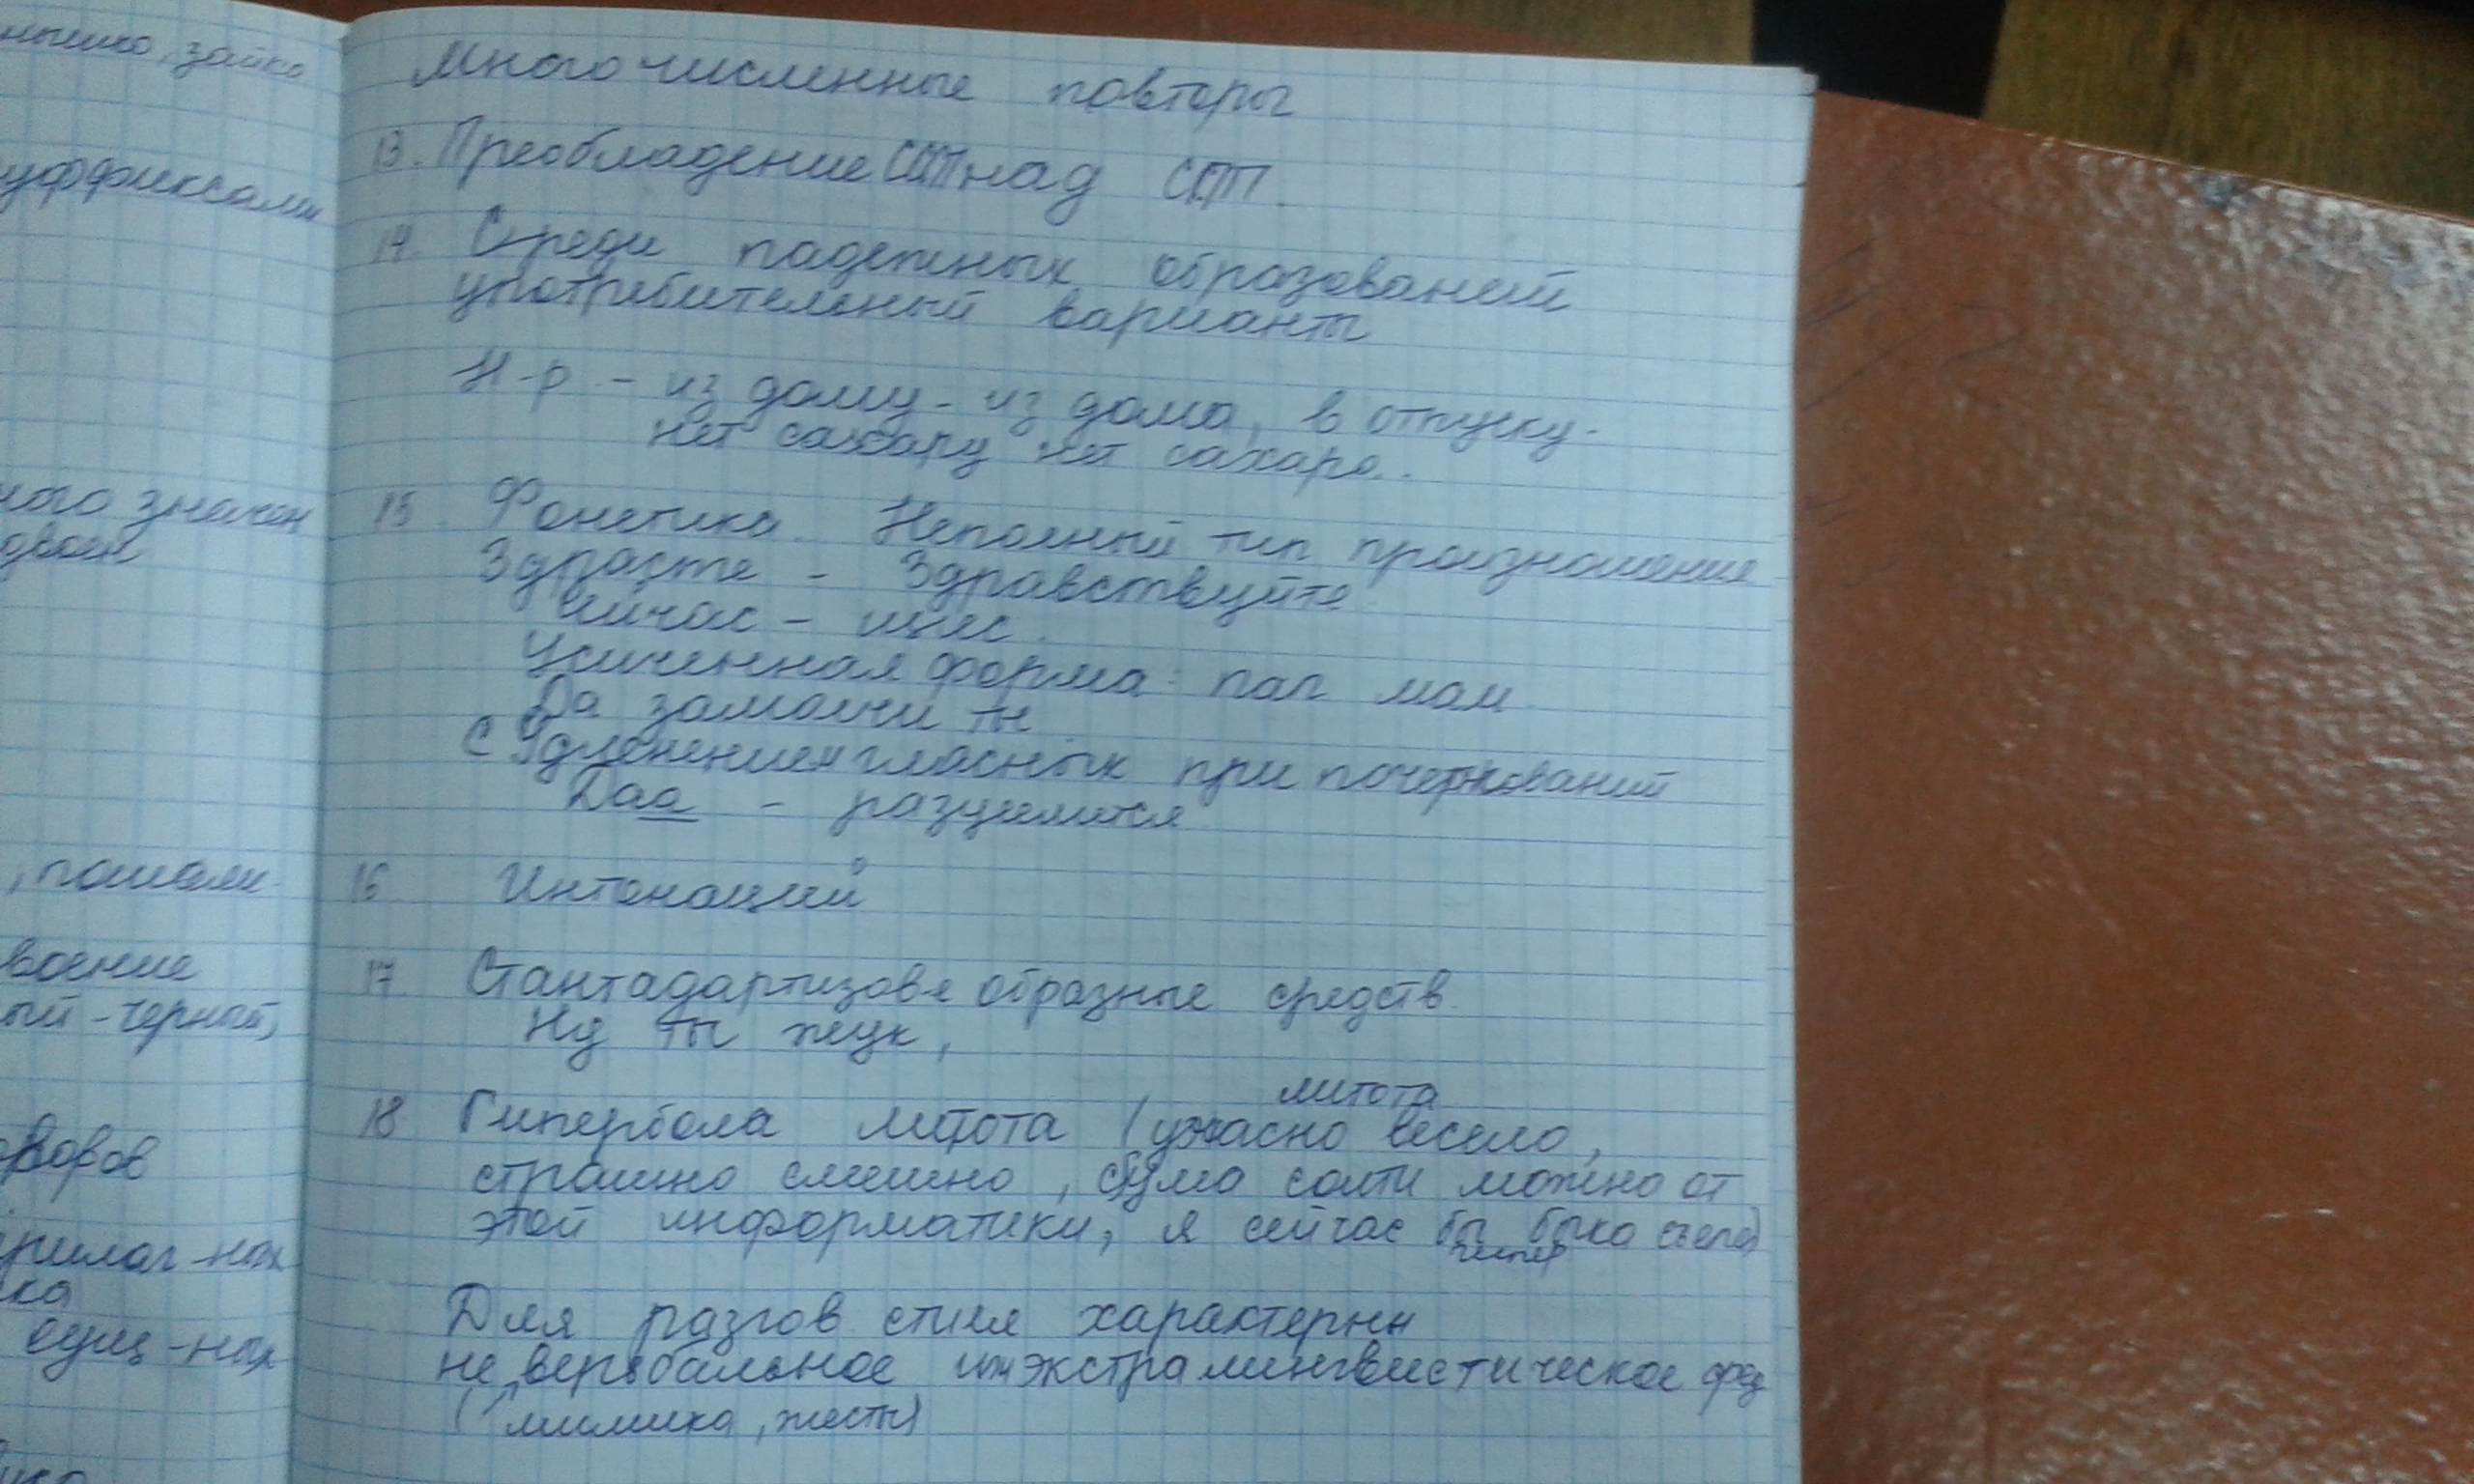 нышко, зайка
уффиксами
ного значен
двоен
, пошали-
воение
ый-черный,
оворов
прилаг-ных
ка
едущ-ных
Многочисленные повторы
13. Преобладение ССП над СПП.
14. Среди падежных образований
употребительный варианты
Н-р - из дому - из дома, в отпуску-
нет сахару нет сахара.
15. Фонетика. Неполный тип произношение
Здрасте - Здравствуйте
Чичас - щас.
Усиченная форма: пап мам
Да замолчи ты
С Удленением гласных при почерковании
Даа - разумется
16 Интонаций
17. Стантадартизов-е образные средств.
Ну ты жук,
литота
18 Гипербола литота (ужасно весело,
страшно смешно, с ума сойти можно от
этой информатики, я сейчас бы быка съел)
гипер
Для разгов стиля характерны
не вербальное или экстралингвистическое
(мимика, жесты)